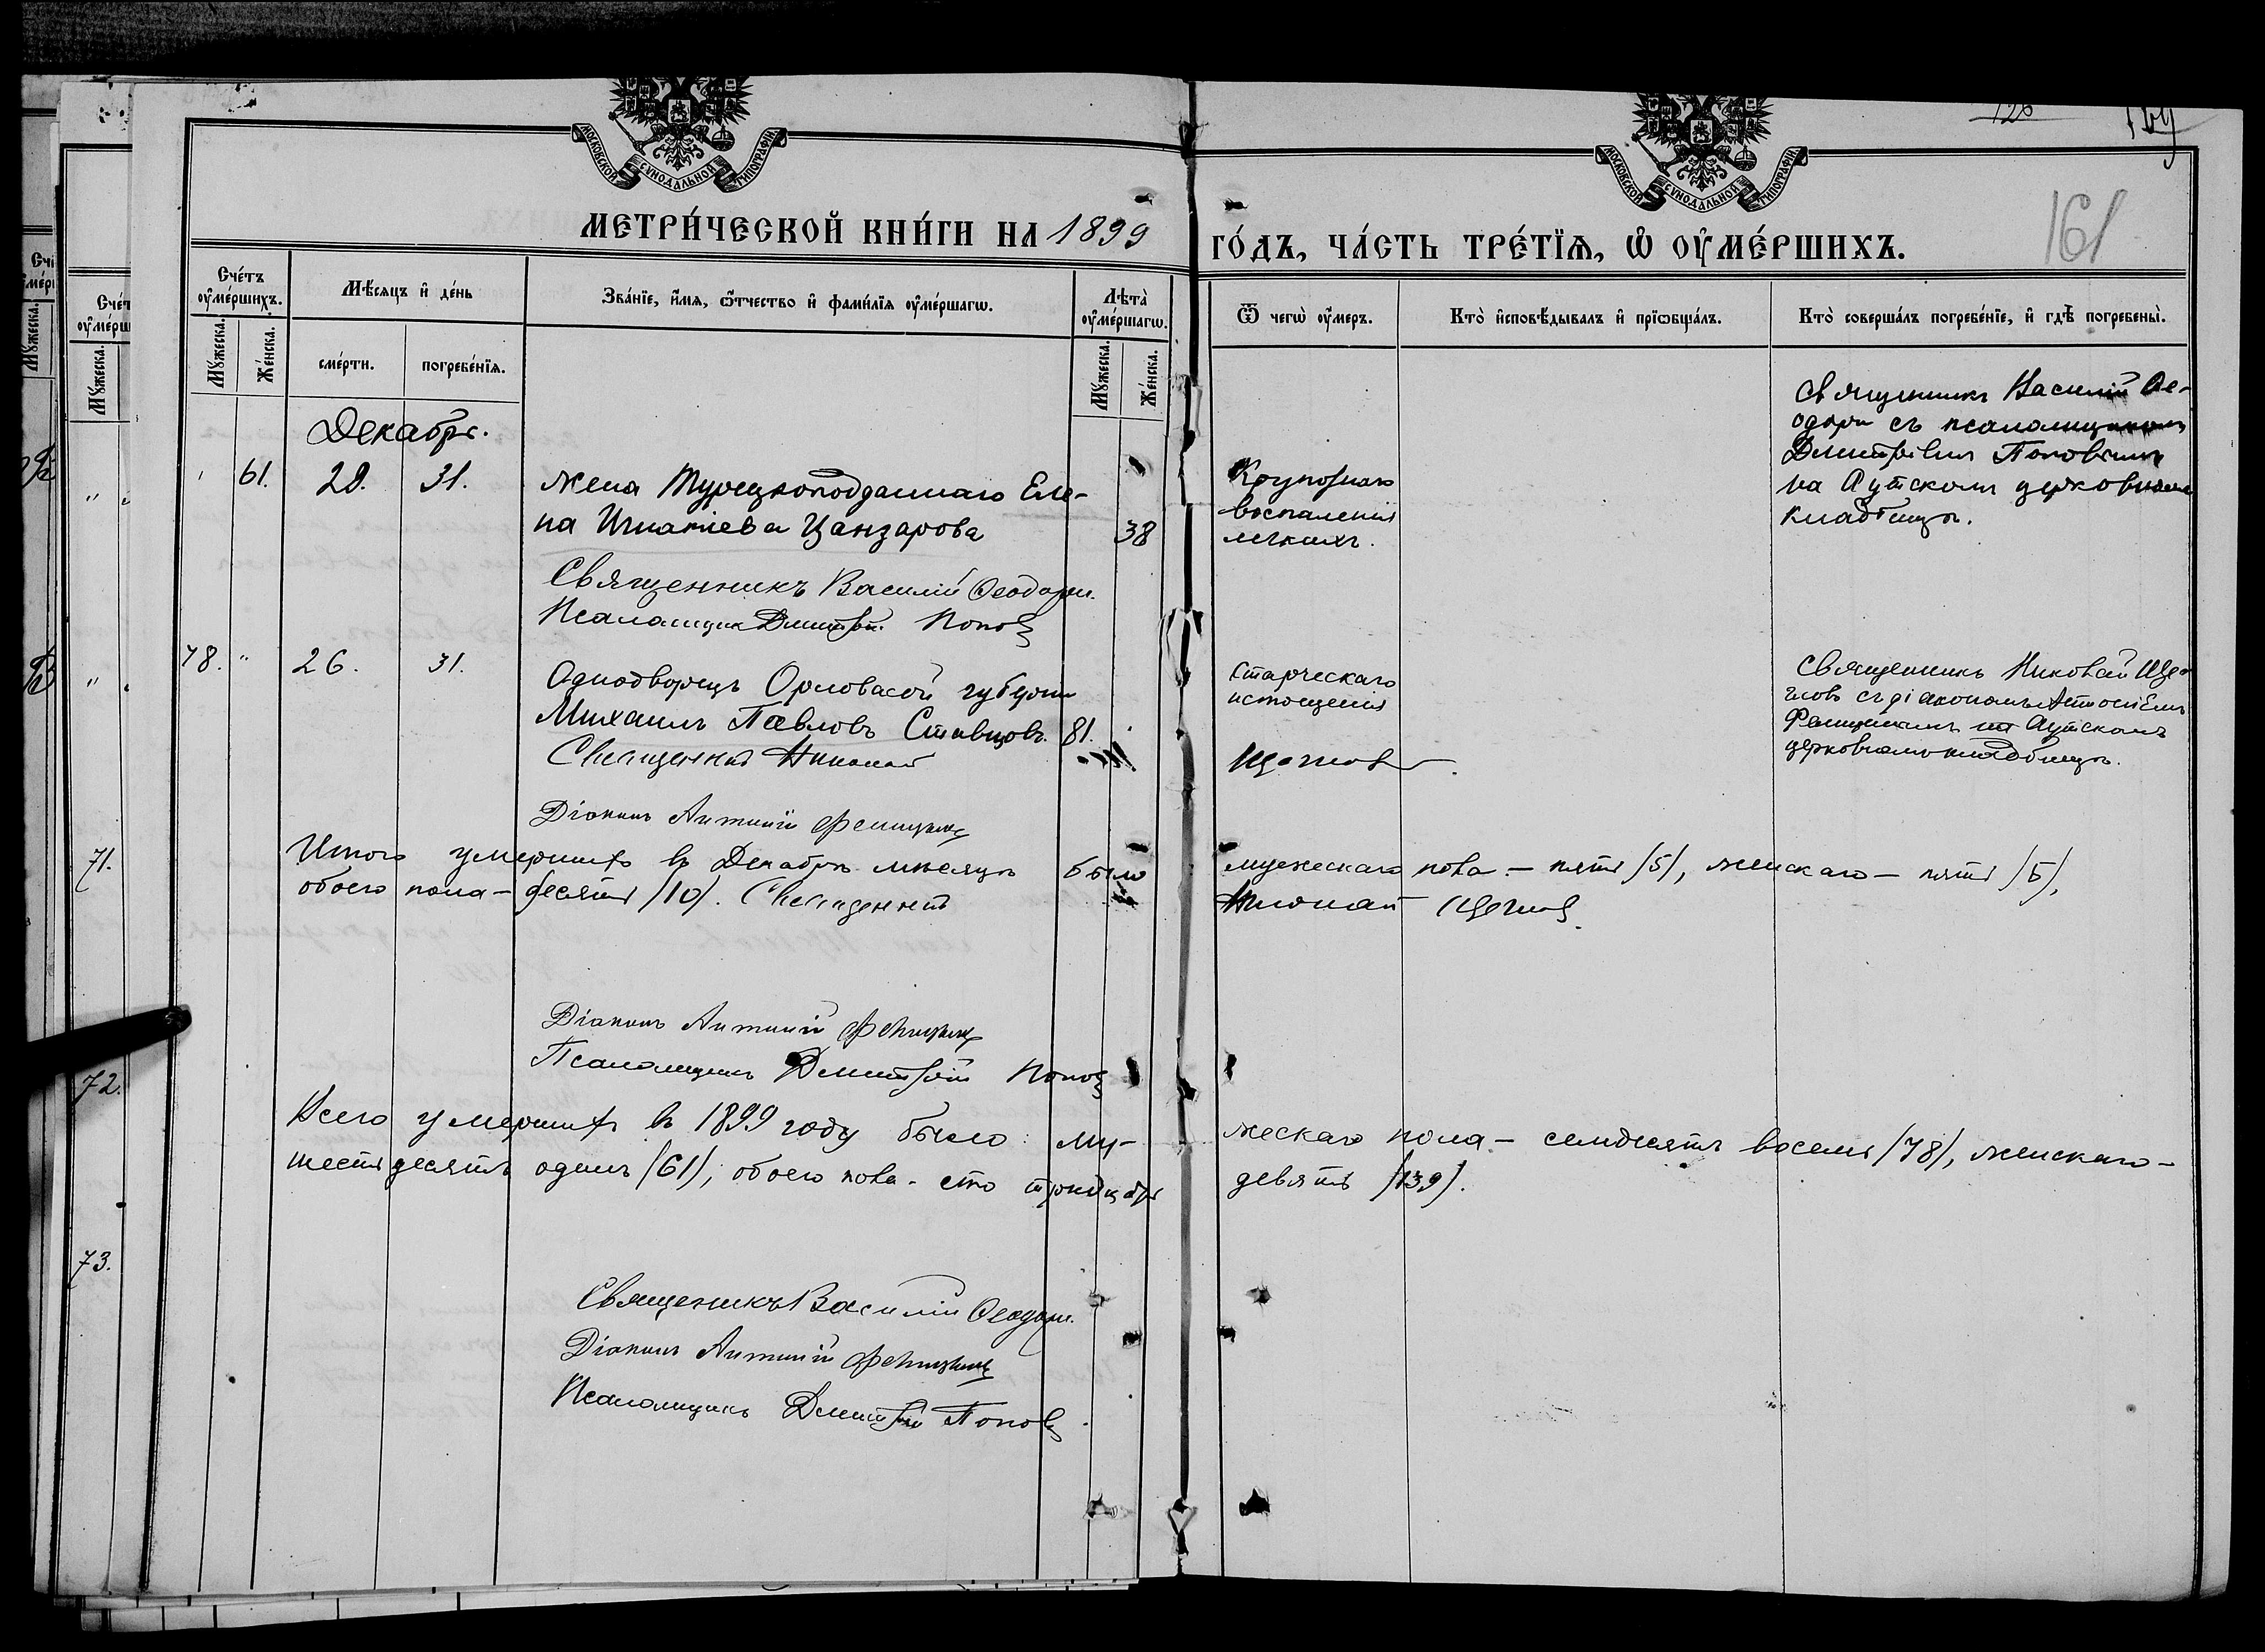 МОСКОВСКОЙ СѴНОДАЛЬНОЙ ТИПОГРАФІИ.
МОСКОВСКОЙ СѴНОДАЛЬНОЙ ТИПОГРАФІИ.
126
161
МЕТРИ́ЧЕСКОЙ КНИ́ГИ НА 1899 ГО́ДЪ, ЧА́СТЬ ТРЕ́ТЇѦ, Ѿ ОУ҆МЕ́РШИХЪ.
Сче́тъ оу҆ме́ршихъ.
Мꙋ́жеска.
Же́нска.
Мѣ́сяцъ и҆ де́нь
сме́рти.
погребе́нїѧ.
Зва́нїе, и҆́мѧ, ѻ҆́тчество и҆ фами́лїѧ оу҆ме́ршагѡ.
Лѣта̀ оу҆ме́ршагѡ.
Мꙋ́жеска.
Же́нска.
Ѿ чегѡ̀ оу҆́меръ.
Кто̀ и҆сповѣ́дывалъ и҆ прїѡбща́лъ.
Кто̀ соверша́лъ погребе́нїе, и҆ гдѣ̀ погребены̀.
Декабрь.
61. 28. 31. жена Турецкоподданнаго Еле-
на Игнатіева Цанзарова 38
Крупознаго
воспаленія
легкихъ.
Священникъ Василій Ѳе-
одори съ псаломщикомъ
Димитріемъ Поповымъ
на Аутскомъ церковномъ
кладбищѣ.
Священникъ Василій Ѳеодори.
Псаломщикъ Дмитрій Поповъ
78. " 26. 31. Однодворецъ Орловской губерніи
Михаилъ Павловъ Ставцовъ. 81.
Старческаго
истощенія
Священникъ Николай Ще-
гловъ съ діакономъ Антоніемъ
Феницкимъ на Аутскомъ
церковномъ кладбищѣ.
Священникъ Николай Щегловъ.
Діаконъ Антоній Феницкій
Итого умершихъ въ Декабрѣ мѣсяцѣ было мужескаго пола – пять /5/, женскаго – пять /5/,
обоего пола – десять /10/. Священникъ Николай Щегловъ.
Діаконъ Антоній Феницкій
Псаломщикъ Дмитрій Поповъ
Всего умершихъ въ 1899 году было: му- жескаго пола – семдесятъ восемь /78/, женскаго –
шестьдесятъ одинъ /61/; обоего пола – сто тридцать девять /139/.
Священникъ Василій Ѳеодори.
Діаконъ Антоній Феницкій
Псаломщикъ Дмитрій Поповъ.
71.
72.
73.